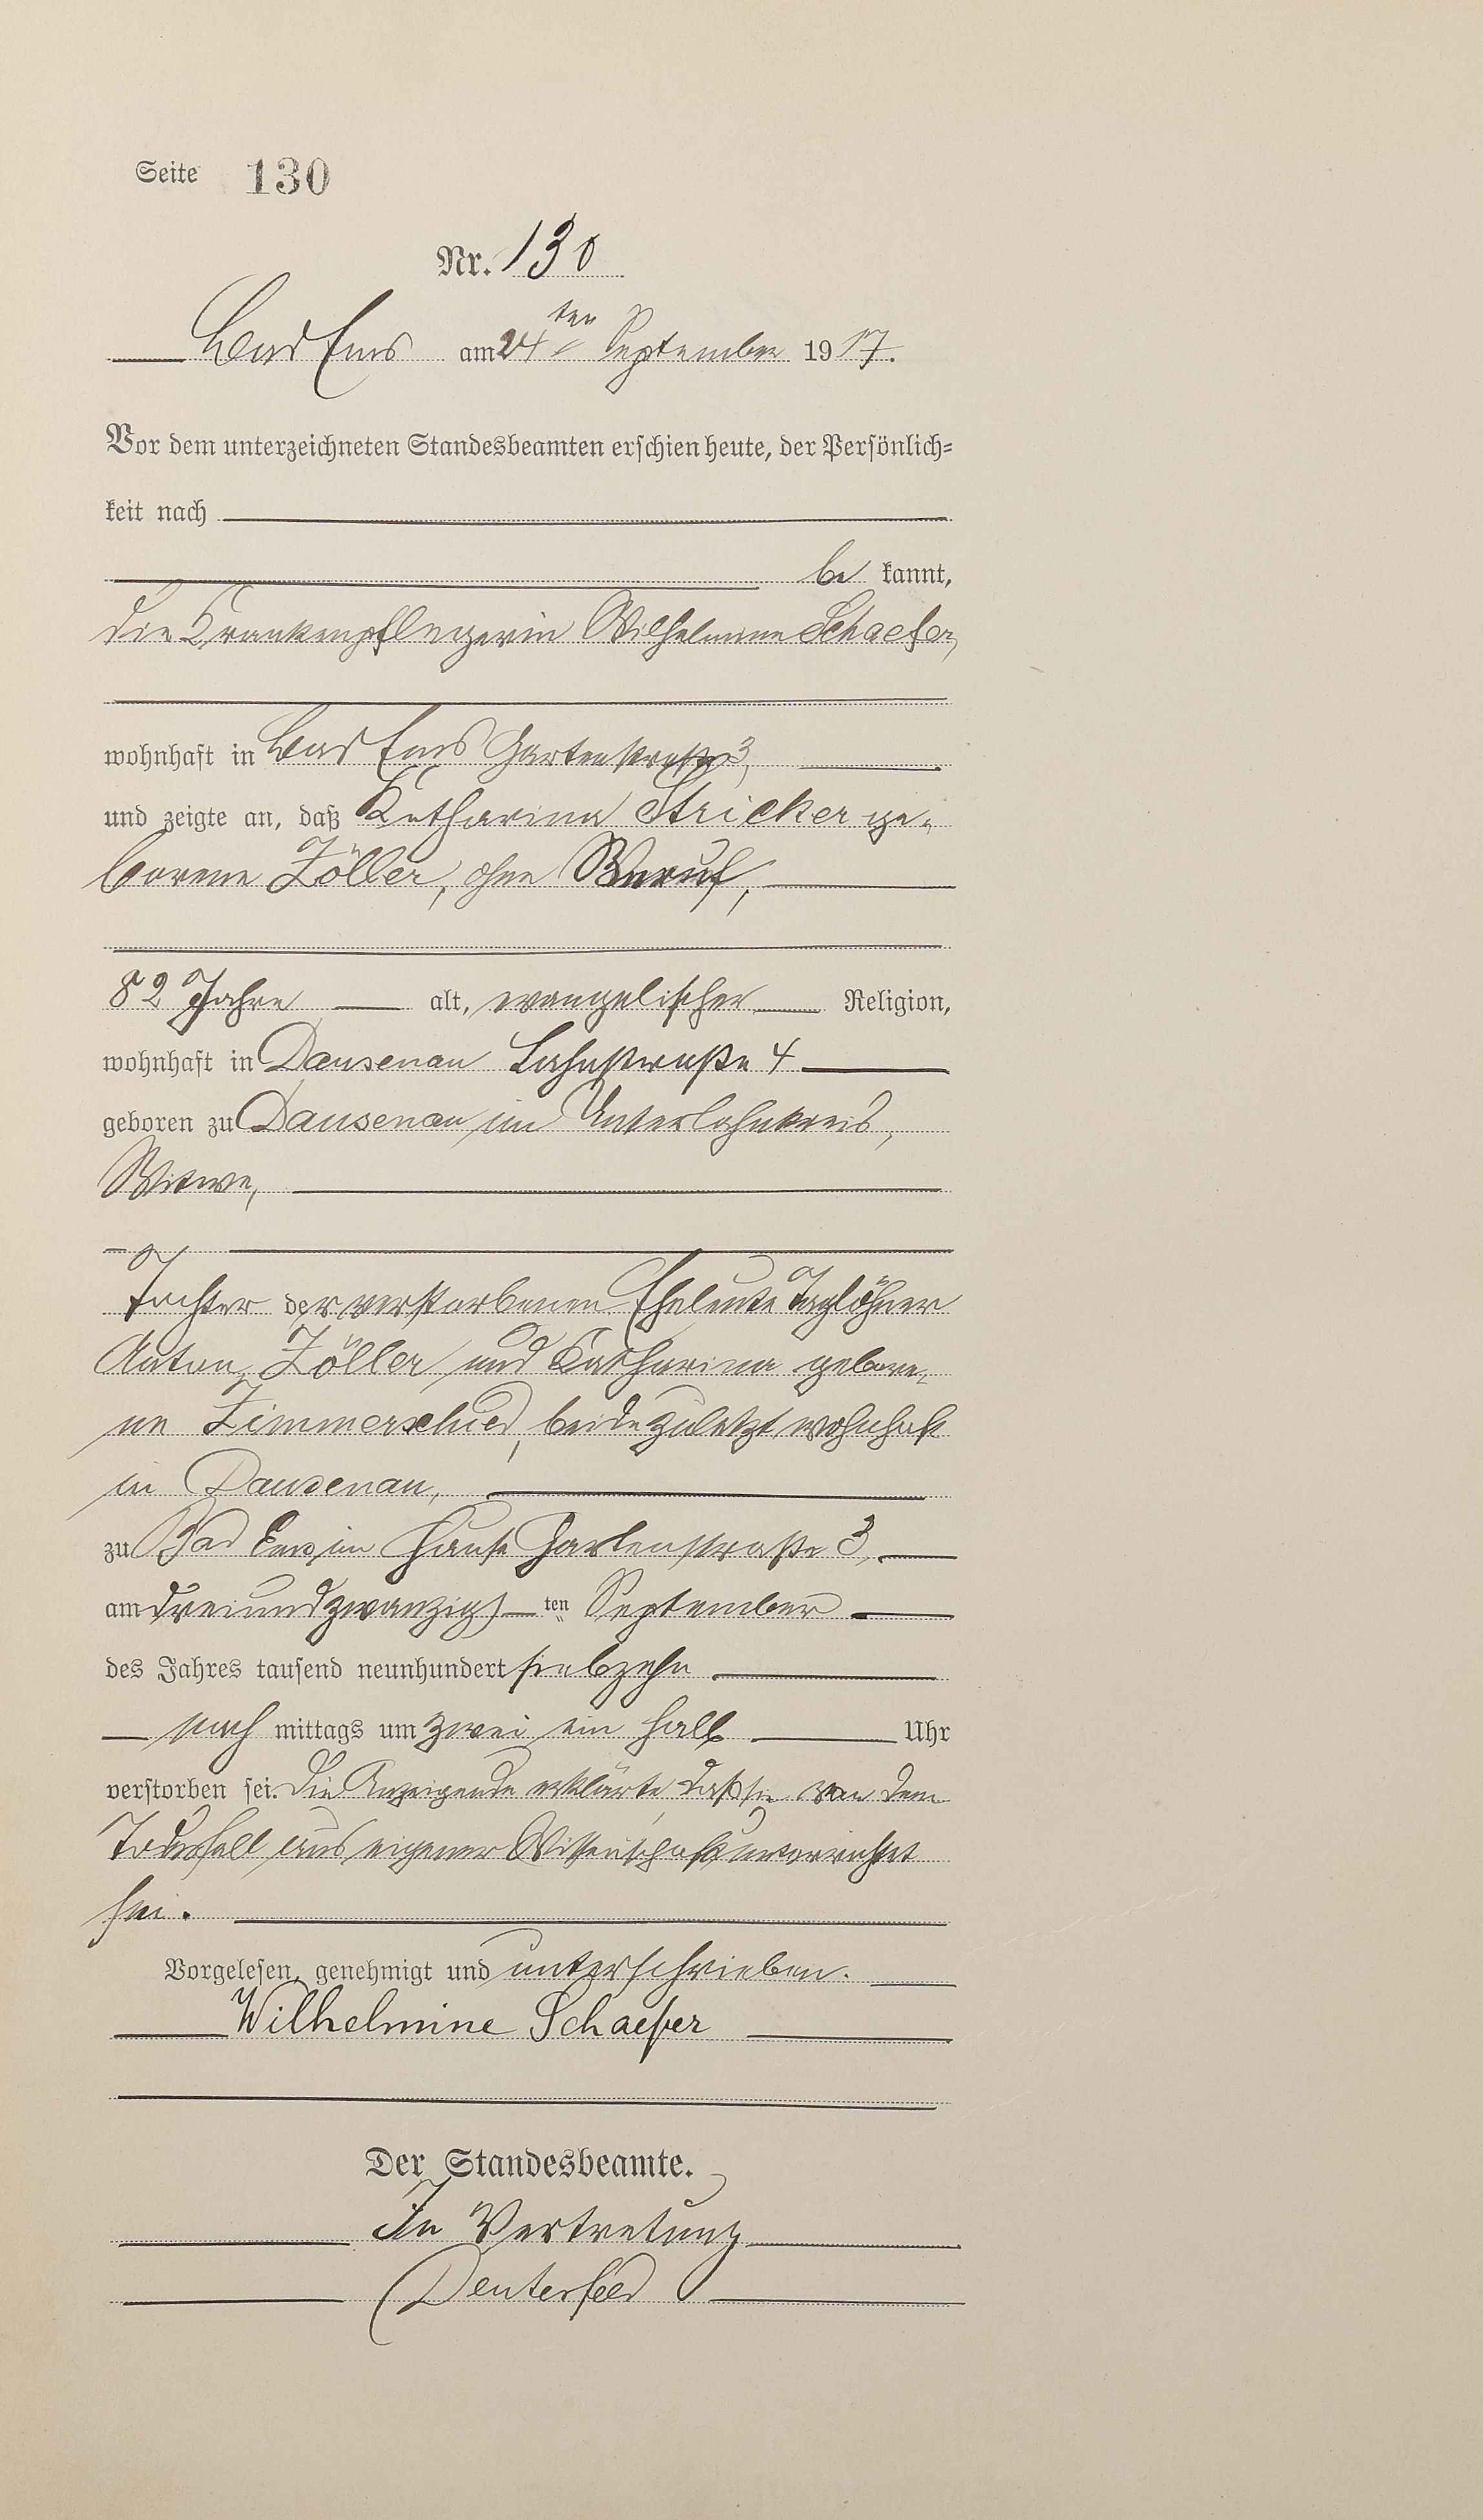 Seite 130
Nr. 130
Bad Ems am 24ten September 1917.
Vor dem unterzeichneten Standesbeamten erschien heute, der Persönlich-
keit nach
be kannt,
die Krankenpflegerin Wilhelmine Schaefer,
wohnhaft in Bad Ems Gartenstraße 3,
und zeigte an, daß Katharina Stricker ge-
borene Zöller, ohne Beruf,
82 Jahre alt, evangelischer Religion,
wohnhaft in Dausenau Lahnstraße 4
geboren zu Dausenau im Unterlahnkreis,
Witwe,
Tochter der verstorbenen Eheleute Taglöhner
Anton Zöller und Katharina gebore-
ne Zimmerschied, beide zuletzt wohnhaft
in Dausenau,
zu Bad Ems im Hause Gartenstraße 3,
am dreiundzwanzig ten September
des Jahres tausend neunhundert siebzehn
nach mittags um zwei ein halb Uhr
verstorben sei. Die Anzeigende erklärte, daß sie von dem
Todesfall aus eigener Wissenschaft unterrichtet
sei.
Vorgelesen, genehmigt und unterschrieben.
Wilhelmine Schaefer
Der Standesbeamte.
In Vertretung